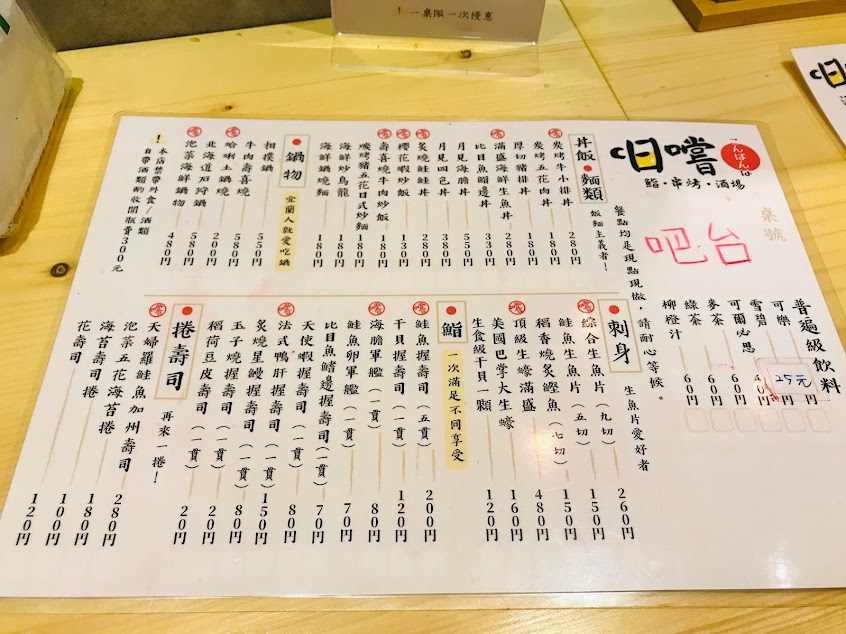 ！一桌限一次優惠
日嚐
こんばんは
鮨・串烤・酒場
桌號
吧台
餐點均是現點現做，請耐心等候。
普遍級飲料
可樂 25元
雪碧 40円
可爾必思 60円
麥茶 60円
綠茶 60円
柳橙汁 60円
丼飯・麵類
飯麵主義者！
炭烤牛小排丼 280円
炭烤五花肉丼 180円
厚切豬排丼 180円
滿盛海鮮生魚丼 280円
比目魚鰭邊丼 330円
月見海膽丼 550円
月見四色丼 380円
炙燒鮭鮭丼 280円
櫻花蝦炒飯 130円
壽喜燒牛肉炒飯 180円
碳烤豬五花日式炒麵 180円
海鮮炒烏龍 180円
海鮮鍋燒麵 180円
鍋物
宜蘭人就愛吃鍋
相撲鍋 550円
牛肉壽喜燒 550円
哈唎土鍋燒 200円
北海道石狩鍋 580円
泡菜海鮮鍋物 480円
！本店禁帶外食/酒類
自帶酒類酌收開瓶費300元
刺身
生魚片愛好者
綜合生魚片（九切） 260円
鮭魚生魚片（五切） 150円
稻香燒炙鰹魚（七切） 150円
頂級生蠔滿盛 480円
美國巴學大生蠔 160円
生食級干貝一顆 120円
鮨
一次滿足不同享受
鮭魚握壽司（五貫） 200円
干貝握壽司（一貫） 120円
海膽軍艦（一貫） 80円
鮭魚卵軍艦（一貫） 70円
比目魚鰭邊握壽司（一貫） 70円
天使蝦握壽司（一貫） 80円
法式鴨肝握壽司（一貫） 80円
炙燒星鰻握壽司（一貫） 150円
玉子燒握壽司（一貫） 80円
稻荷豆皮壽司（一貫） 20円
捲壽司
再來一捲！
天婦羅鮭魚加州壽司 280円
泡菜五花海苔捲 180円
海苔壽司捲 100円
花壽司 120円